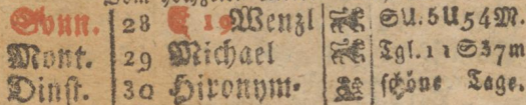 Sonn. 28 E 19 Wenzl SU. 5 U 54 M.
Mont. 29 Michael Tgl. 11 S 37 m
Dinst. 30 Hieronym- schöne Tage.